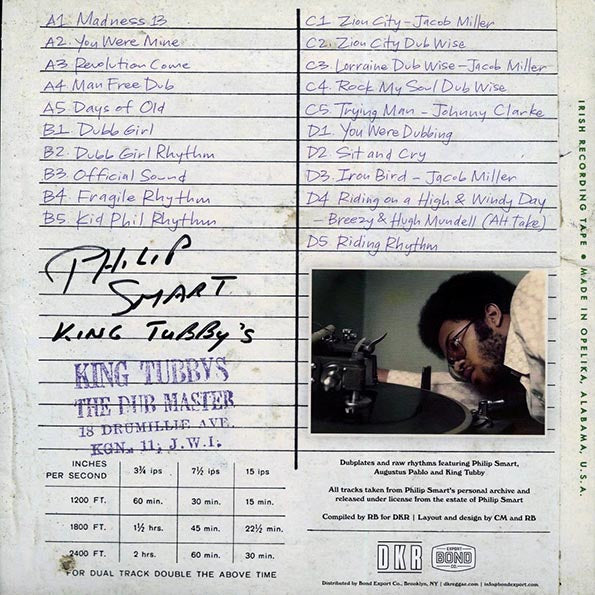 A1. Madness 13
A2. You Were Mine
A3 Revolution Come
A4. Man Free Dub
A5. Days of Old
B1. Dubb Girl
B2. Dubb Girl Rhythm
B3. Official Sound
B4. Fragile Rhythm
B5. Kid Phil Rhythm
C1 Zion City - Jacob Miller
C2. Zion City Dub Wise
C3. Lorraine Dub Wise - Jacob Miller
C4. Rock My Soul Dub Wise
C5. Trying Man - Johnny Clarke
D1. You Were Dubbing
D2. Sit and Cry
D3. Iron Bird - Jacob Miller
D4 Riding on a High & Windy Day
- Breezy & Hugh Mundell (Alt Take)
D5 Riding Rhythm
PHILIP
SMART
KING TUBBY'S
KING TUBBYS
THE DUB MASTER
18 DRUMILLIE AVE.
KGN. 11, J.W.I.
INCHES PER SECOND 3¾ ips 7½ ips 15 ips
1200 FT. 60 min. 30 min. 15 min.
1800 FT. 1½ hrs. 45 min. 22½ min.
2400 FT. 2 hrs. 60 min. 30 min.
FOR DUAL TRACK DOUBLE THE ABOVE TIME
Dubplates and raw rhythms featuring Philip Smart,
Augustus Pablo and King Tubby
All tracks taken from Philip Smart's personal archive and
released under license from the estate of Philip Smart
Compiled by RB for DKR | Layout and design by CM and RB
DKR
EXPORT
BOND
CO.
Distributed by Bond Export Co., Brooklyn, NY | dkreggae.com | info@bondexport.com
IRISH RECORDING TAPE • MADE IN OPELIKA, ALABAMA, U.S.A.